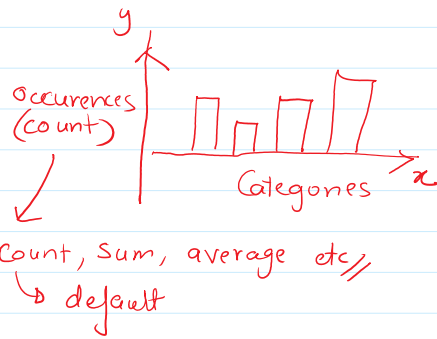 y
occurences
(count)
Categories
x
Count, Sum, average etc
default